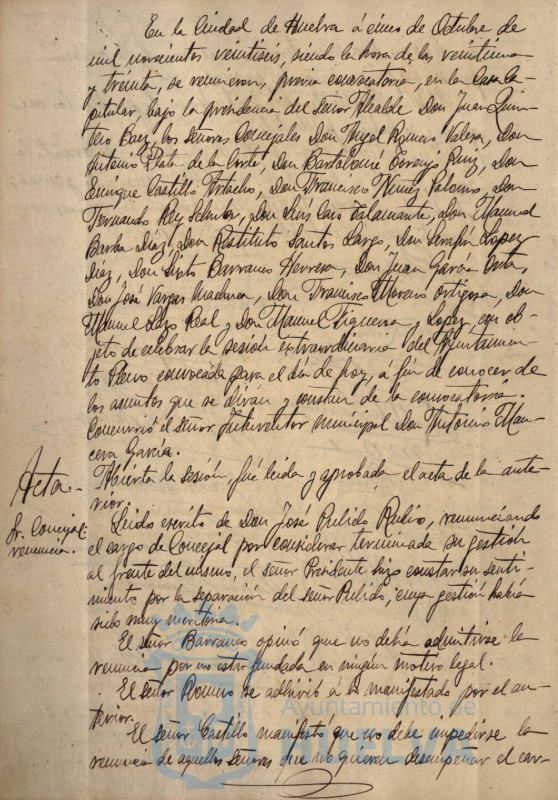 En la Ciudad de Huelva á cinco de Octubre de
mil novecientos veintiseis, siendo la hora de las veintiuna
y treinta, se reunieron, previa convocatoria, en la Casa Ca-
pitular, bajo la presidencia del señor Alcalde Don Juan Quin-
tero Baez, los señores Concejales Don Angel Romero Valera, Don
Antonio Plata de la Corte, Don Bartolomé Ruiz, Don
Enrique Castillo Don Francisco Nuñez Palomo, Don
Fernando Rey Don Luis Caro Talamante, Don Manuel
Barba Diaz, Don Restituto Santos Largo, Don Serafin Lopez
Diaz, Don Sixto Barranco Herrera, Don Juan Garcia Orta,
Don José Vargas Machuca, Don Francisco Moreno Ortigosa, Don
Manuel Real y Don Manuel Figueroa y Lopez, con ob-
jeto de celebrar la sesión extraordinaria del Ayuntamien-
to Pleno convocada para el dia de hoy, á fin de conocer de
los asuntos que se dirán y constan de la convocatoria.
Concurrió el señor Interventor municipal Don Antonio Man-
cera Garcia.
Acta.- Abierta la sesión, fué leida y aprobada el acta de la ante-
rior.
Sr. Concejal: renuncia. Leido escrito de Don José Pulido Rubio, renunciando
el cargo de Concejal por considerar terminada su gestión
al frente del mismo, el señor Presidente hizo constar su senti-
miento por la separación del señor Pulido, cuya gestión habia
sido muy meritoria.
El señor Barranco opinó que no debia admitirse la
renuncia por no estar fundada en ningun motivo legal.
El señor Romero se adhirió á lo manifestado por el an-
terior.
El señor Castillo manifestó que no debe impedirse la
renuncia de aquellos señores que no quieran desempeñar el car-
Ayuntamiento de
HUELVA